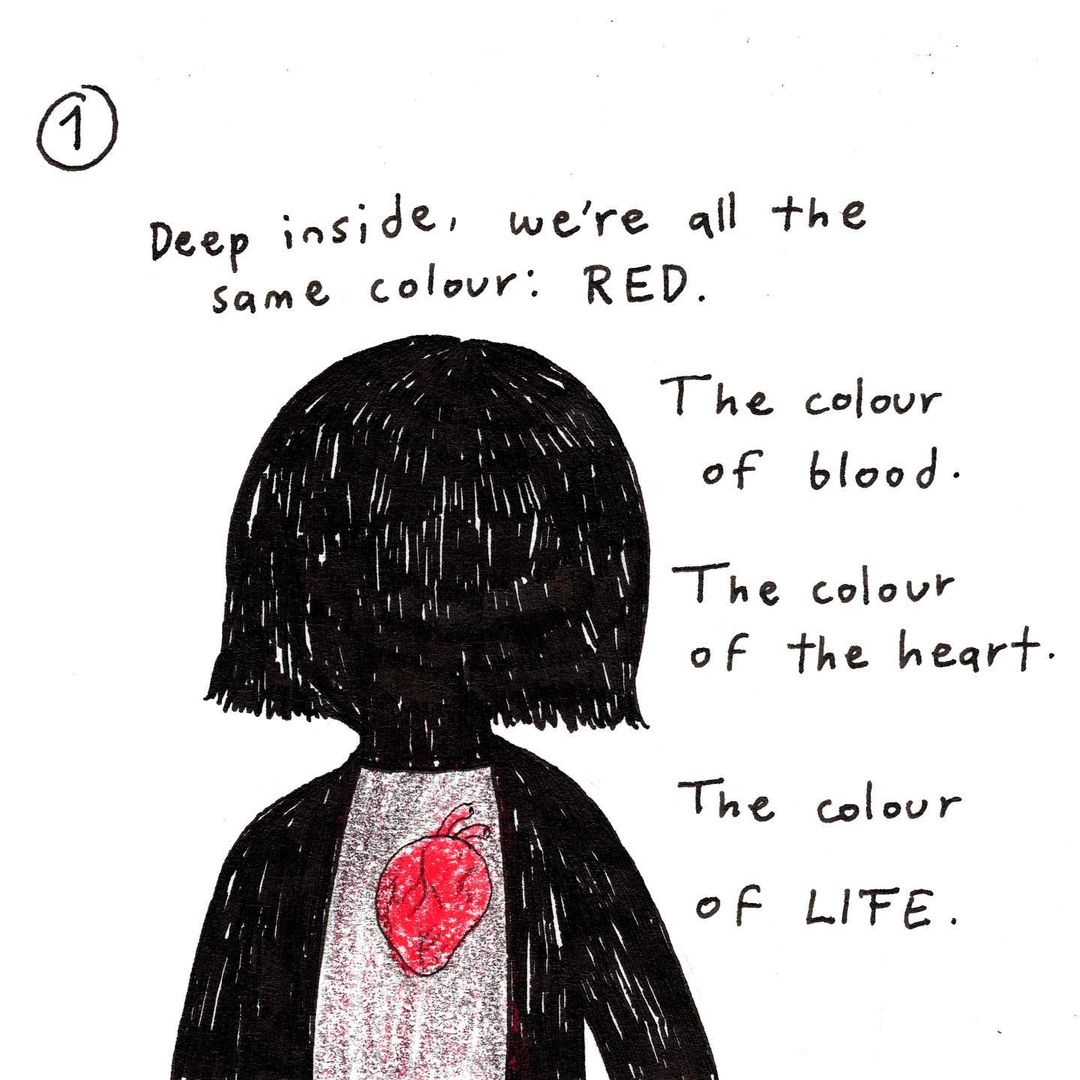 1
Deep inside, we're all the
same colour: RED.
The colour
of blood.
The colour
of the heart.
The colour
of LIFE.